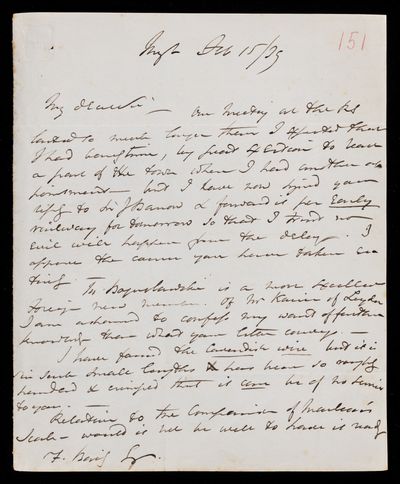 151
Feb 15/39
My dear Sir — Our meeting at the RS
lasted so much longer than I expected that
I had time, by great exertion to leave
a part of the town where I had another ap
pointment — but I have now signed your
reply to Sir J Barrow & forward it per Early
railway for tomorrow so that I trust no
evil will happen from the delay. I
approve the course you have taken en
tirely.
Mr Boguslawski is a most excellent
foreign new member. Of Mr Kaiser of Leyden
I am ashamed to confess my want of further
knowledge than what your letter conveys. —
I have found the Cavendish wire but it is
in such small lengths & has been so roughly
handled & crimped that it can be of no service
to you. —
Relative to the Comparison of
Scale — would it not be well to have it ready
F. Baily Esq.